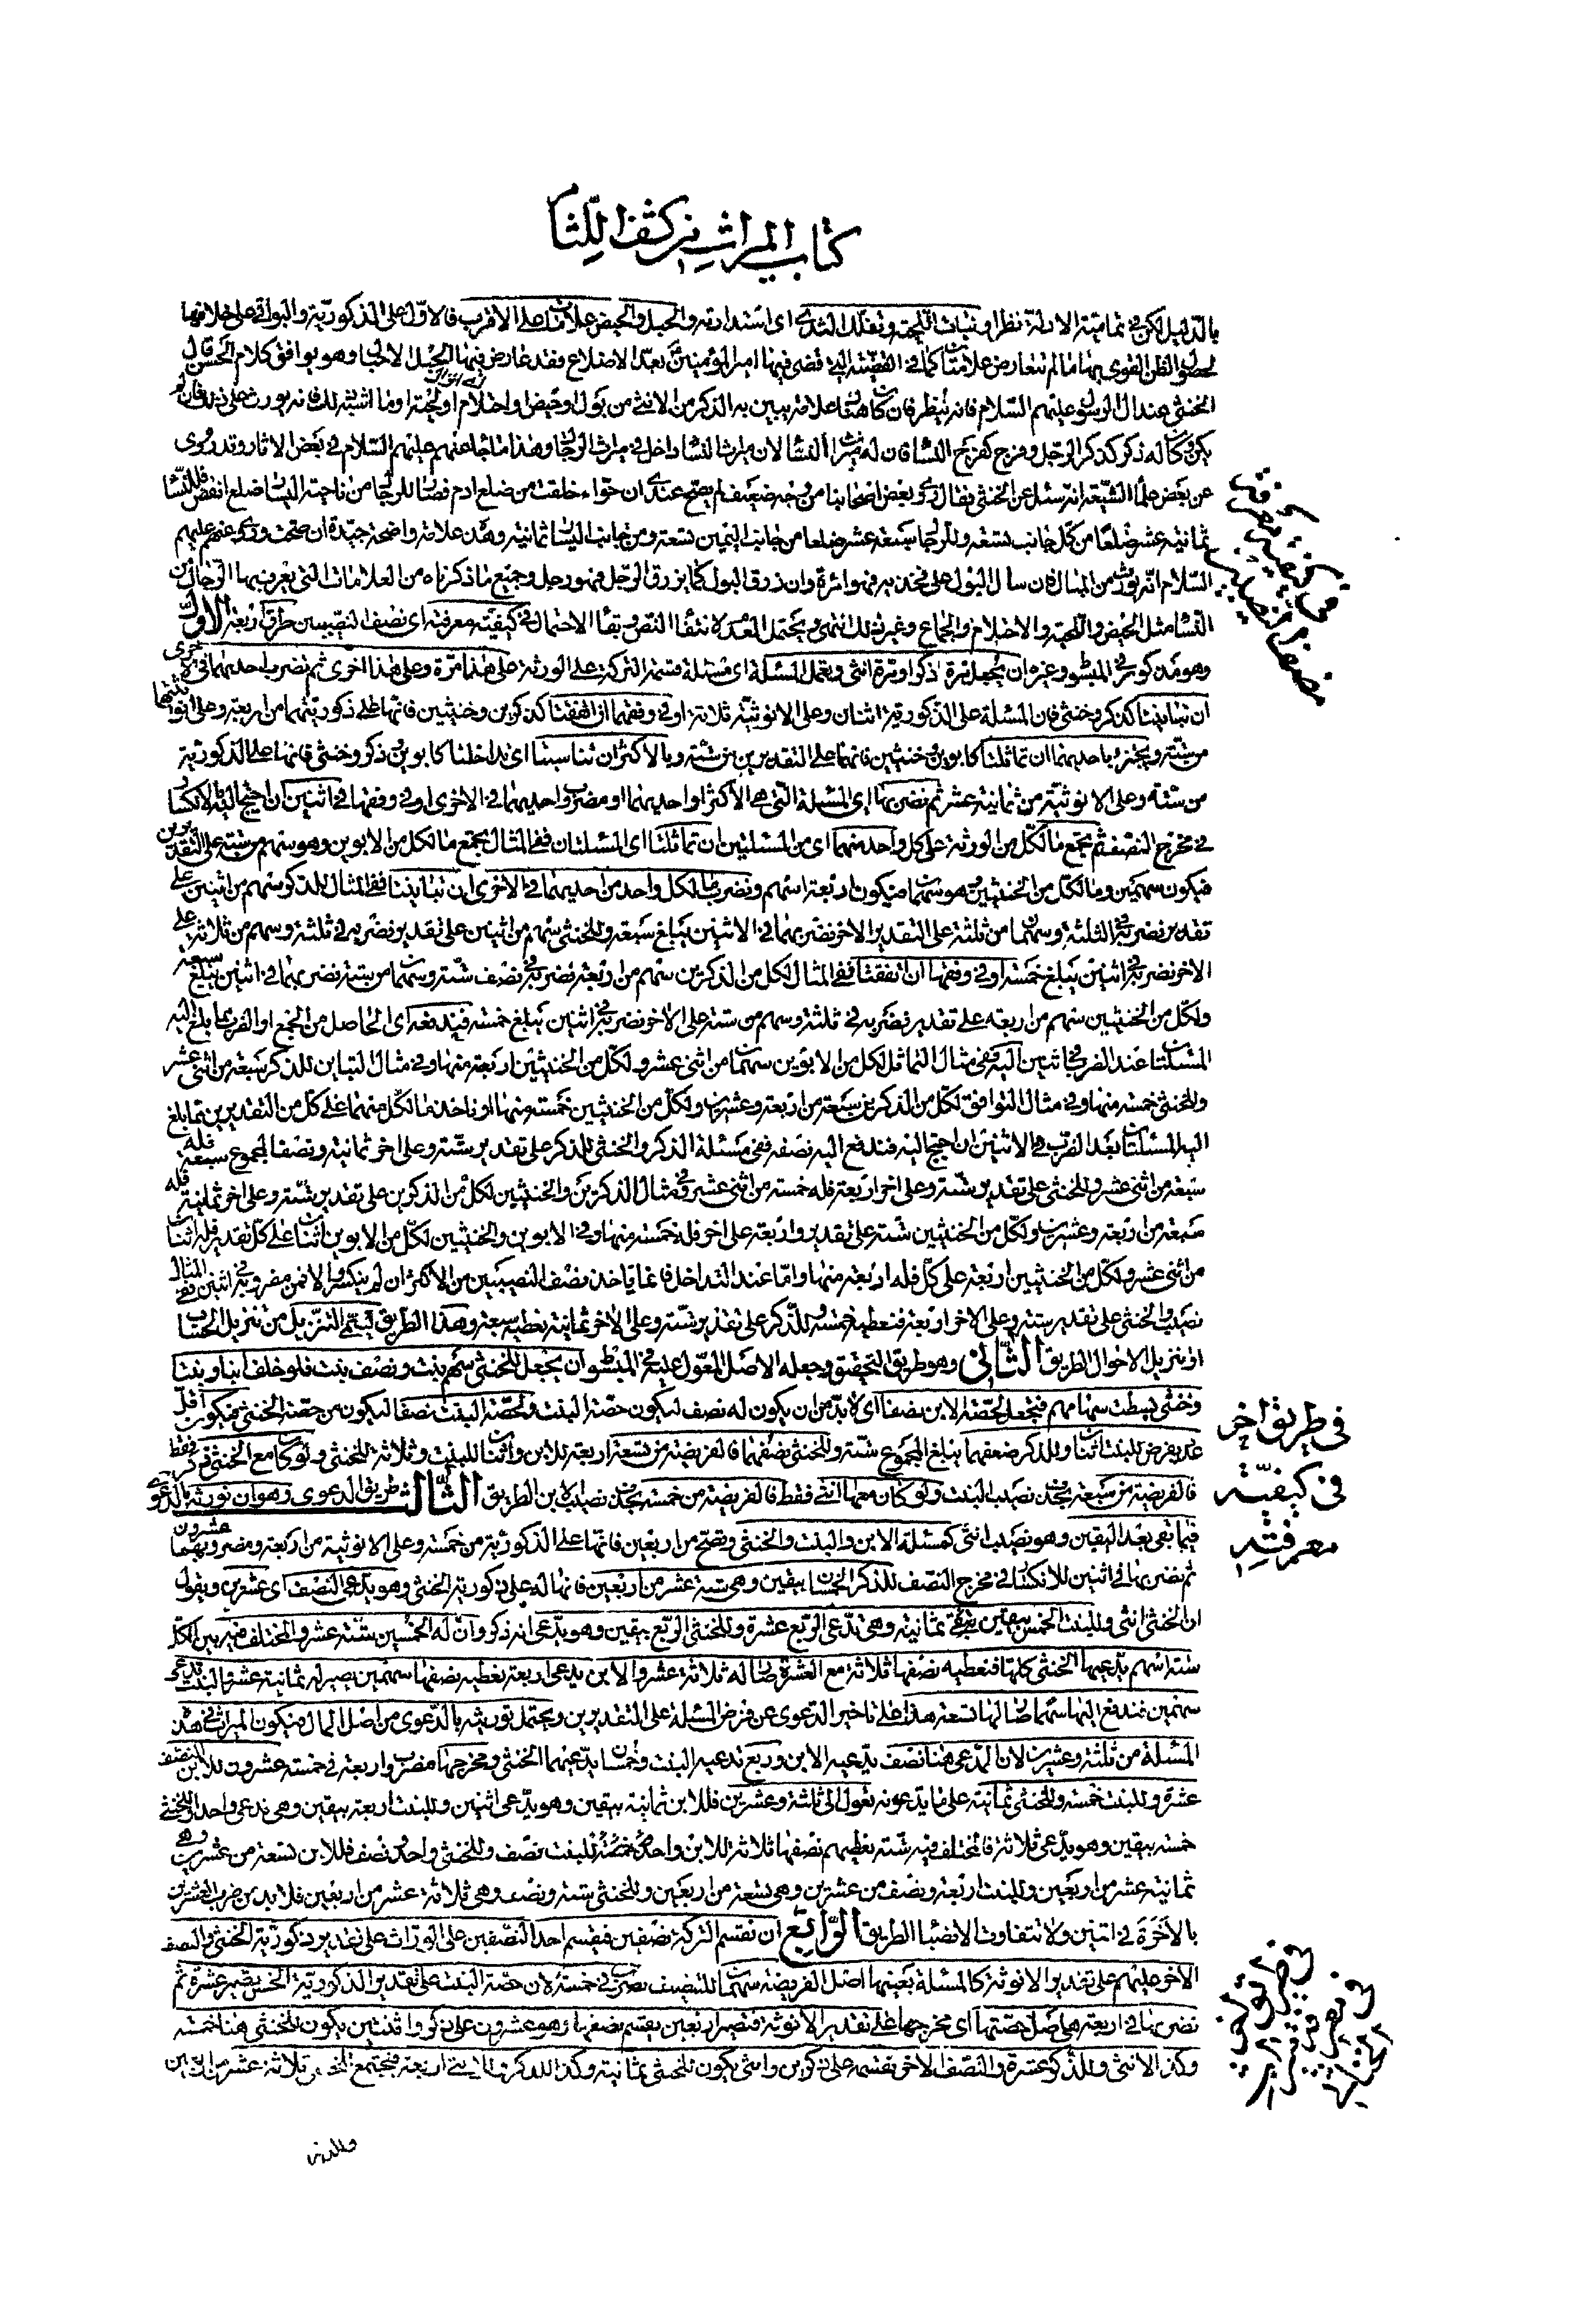 كتاب الميراث من كشف اللثام
بالدليل لكن في تمامية الادلة نظر او نبات اللحية وتفلك الثدي اى استدارته والحبل والحيض علامات على الاقرب فالاول على الذكورية والبواقي على خلافها
لحصول الظن القوى بها ما لم تتعارض علامتان كما في القضية التي قضى فيها امير المؤمنين بعد الاضلاع فقد عارض فيها الحبل الاحبال وهو يوافق كلام الحسن قال
الخنثى عند ال الرسول عليهم السلام فانه ينظر فان كان هناك علامة يبين به الذكر من الانثى من بول او حيض او احتلام او لحية او ما اشبه ذلك فانه يورث على ذلك فان لم
يكن وكان له ذكر كذكر الرجل وفرج كفرج النساء فان له ميراث النساء لان ميراث النساء داخل في ميراث الرجال وهذا ما جاء عنهم عليهم السلام في بعض الاثار وقد روى
عن بعض علماء الشيعة انه سئل عن الخنثى فقال روى بعض اصحابنا من وجه ضعيف لم يصح عندى ان حواء خلقت من ضلع ادم فصار للرجال من ناحية اليسار ضلع انقص فللنساء
ثمانية عشر ضلعا من كل جانب تسعة وللرجال سبعة عشر ضلعا من جانب اليمين تسعة ومن جانب اليسار ثمانية وهذه علامة واضحة جيدة ان صحت وروى عنهم عليهم
السلام انه يورث من المبال فان سال البول على فخذيه فهو امراة وان زرق البول كما يزرق الرجل فهو رجل وجميع ما ذكرناه من العلامات التي يعرف بها الرجال من
النساء مثل الحيض واللحية والاحتلام والجماع وغير ذلك انتهى ويحتمل العدم لانتفاء النص وبقاء الاحتمال في كيفية معرفته اى نصف النصيبين طرق اربعة الاول
وهو مذكور في المبسوط وغيره ان يجعل مرة ذكرا ومرة انثى ويعمل المسئلة اى مسئلة قسمة التركة على الورثة على هذا مرة وعلى هذا اخرى ثم نضرب احديهما في الاخرى
ان تباينتا كذكر وخنثى فان المسئلة على الذكورية اثنان وعلى الانوثية ثلاثة او في وفقهما ان اتفقتا كذكرين وخنثيين فانها على ذكوريتهما من اربعة وعلى انوثيتهما
من ستة ويجتزء باحديهما ان تماثلتا كابوين وخنثيين فانها على التقديرين من ستة وبالاكثر ان تناسبتا اى تداخلتا كابوين وذكر وخنثى فانها على الذكورية
من ستة وعلى الانوثية من ثمانية عشر ثم نضربها اى المسئلة التي هي الاكثر او احديهما او مضروب احديهما في الاخرى او في وفقها في اثنين ان احتيج اليه لانكسار
في مخرج النصف ثم يجمع ما لكل من الورثة على كل واحد منهما اى من المسئلتين ان تماثلتا اى المسئلتان ففي المثال يجتمع ما لكل من الابوين وهو سهم من ستة على التقديرين
فيكون سهمين وما لكل من الخنثيين وهو سهمان فيكون اربعة اسهم ونضرب ما لكل واحد من احديهما في الاخرى ان تباينتا ففي المثال للذكر سهم من اثنين على
تقدير نضربه في الثلثة وسهمان من ثلثة على التقدير الاخر نضربهما في الاثنين يبلغ سبعة وللخنثى سهم من اثنين على تقدير نضربه في ثلثة وسهم من ثلاثة على
الاخر نضربه في اثنين يبلغ خمسة او في وفقها ان اتفقتا ففي المثال لكل من الذكرين سهم من اربعة نضربه في نصف ستة وسهمان من ستة نضربهما في اثنين يبلغ سبعة
ولكل من الخنثيين سهم من اربعة على تقدير نضربه في ثلثة وسهم من ستة على الاخر نضربه في اثنين يبلغ خمسة فيندفعه اى الحاصل من الجمع او الضرب مما بلغ اليه
المسئلتان عند الضرب في اثنين اليه ففي مثال التماثل لكل من الابوين سهمان من اثنى عشر ولكل من الخنثيين اربعة منها وفي مثال التباين للذكر سبعة من اثنى عشر
وللخنثى خمسة منها وفي مثال التوافق لكل من الذكرين سبعة من اربعة وعشرين ولكل من الخنثيين خمسة منها او ناخذ ما لكل منهما على كل من التقديرين مما بلغ
اليه المسئلتان بعد الضرب في الاثنين ان احتيج اليه فندفع اليه نصفه ففي مسئلة الذكر والخنثى للذكر على تقدير ستة وعلى اخر ثمانية ونصف المجموع سبعة فله
سبعة من اثنى عشر وللخنثى على تقدير ستة وعلى اخر اربعة فله خمسة من اثنى عشر وفي مثال الذكرين والخنثيين لكل من الذكرين على تقدير ستة وعلى اخر ثمانية فله
سبعة من اربعة وعشرين ولكل من الخنثيين ستة على تقدير واربعة على اخر فله خمسة منها وفي الابوين والخنثيين لكل من الابوين اثنان على كل تقدير فله اثنان
من اثنى عشر ولكل من الخنثيين اربعة على كل فله اربعة منها واما عند التداخل فانما ياخذ نصف النصيبين من الاكثر ان لم ينكسر والا فمن مضروبه في اثنين ففي المثال
نصيب الخنثى على تقدير ستة وعلى الاخر اربعة فنعطيه خمسة وللذكر على تقدير ستة وعلى الاخر ثمانية نعطيه سبعة وهذا الطريق ليسمى التنزيل من تنزيل الحساب
او تنزيل الاحوال الطريق الثاني وهو طريق التحقيق وجعله الاصل المعول عليه في المبسوط ان يجعل للخنثى سهم بنت ونصف بنت فلو خلف ابنا وبنتا
وخنثى بسطت سهامهم فتجعل لحصة الابن نصفا اى لابد من ان يكون له نصف ليكون حصة البنت ولحصة البنت نصفا ليكون من حصة الخنثى فيكون اقل
عدد يفرض للبنت اثنان وللذكر ضعفهما يبلغ المجموع ستة وللخنثى نصفهما فالفريضة من تسعة اربعة للابن واثنان للبنت وثلاثة للخنثى ولو كان مع الخنثى ذكر فقط
فالفريضة من سبعة بحذف نصيب البنت ولو كان معها انثى فقط فالفريضة من خمسة بحذف نصيب الابن الطريق الثالث طريق الدعوى وهو ان نورثه بالدعوى
فيما بقى بعد اليقين وهو نصيب انثى كمسئلة الابن والبنت والخنثى وتصح من اربعين فانها على الذكورية من خمسة وعلى الانوثية من اربعة ومضروبهما عشرون
ثم نضربها في اثنين للانكسار في مخرج النصف للذكر الخمسان بيقين وهى ستة عشر من اربعين فانها له على ذكورية الخنثى وهو يدعى النصف اى عشرين ويقول
ان الخنثى انثى وللبنت الخمس بيقين ثمانية وهى تدعى الربع عشرة وللخنثى الربع بيقين وهو يدعى انه ذكر وان له الخمسين ستة عشر والمختلف فيه بين الكل
ستة اسهم يدعيها الخنثى كلها فنعطيه نصفها ثلاثة مع العشرة صار له ثلاثة عشر والابن يدعى اربعة نعطيه نصفها سهمين يصير له ثمانية عشر والبنت تدعى
سهمين فندفع اليها سهما صار لها تسعة هذا على تاخير الدعوى عن فرض المسئلة على التقديرين ويحتمل توريثه بالدعوى من اصل المال فيكون الميراث في هذه
المسئلة من ثلثة وعشرين لان المدعى هنا نصف يدعيه الابن وربع تدعيه البنت وخمسان يدعيهما الخنثى ومخرجها مضروب اربعة في خمسة عشرون للابن النصف
عشرة وللبنت خمسة وللخنثى ثمانية على ما يدعونه تعول الى ثلثة وعشرين فللابن ثمانية بيقين وهو يدعى اثنين وللبنت اربعة بيقين وهى تدعى واحدا وللخنثى
خمسة بيقين وهو يدعى ثلاثة فالمختلف فيه ستة نعطيهم نصفها ثلاثة للابن واحد وللبنت نصف وللخنثى واحد ونصف فللابن تسعة من عشرين وهى
ثمانية عشر من اربعين وللبنت اربعة ونصف من عشرين وهى تسعة من اربعين وللخنثى ستة ونصف وهى ثلاثة عشر من اربعين فلابد من ضرب العشرين
بالاخرة في اثنين ولا تتفاوت الانصباء الطريق الرابع ان نقسم التركة نصفين فيقسم احد النصفين على الوراث على تقدير ذكورية الخنثى والنصف
الاخر عليهم على تقدير الانوثة كالمسئلة بعينها اصل الفريضة سهمان للتنصيف نضرب في خمسة لان حصة البنت على تقدير الذكورية الخمس يصير عشرة ثم
نضربها في اربعة هى اصل حصتها اى مخرجها على تقدير الانوثة فتصير اربعين يقسم نصفها وهو عشرون على ذكر وانثيين يكون للخنثى هنا خمسة
وكذا الانثى وللذكر عشرة والنصف الاخر نقسمه على ذكرين وانثى يكون للخنثى ثمانية وكذا للذكر وللانثى اربعة فيجتمع للخنثى ثلاثة عشر
في كيفية معرفة
نصف النصيبين
في طريق اخر
في كيفية
معرفته